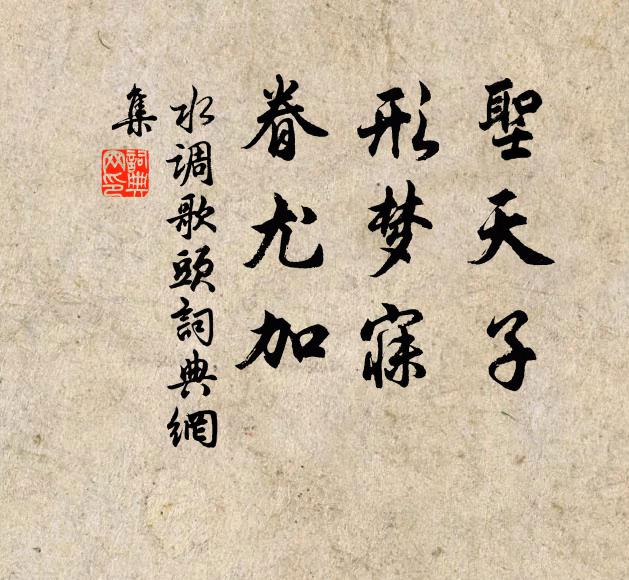 聖天子
形梦寐
眷尤加
水调歌頭詞典網
集
詞典
网印